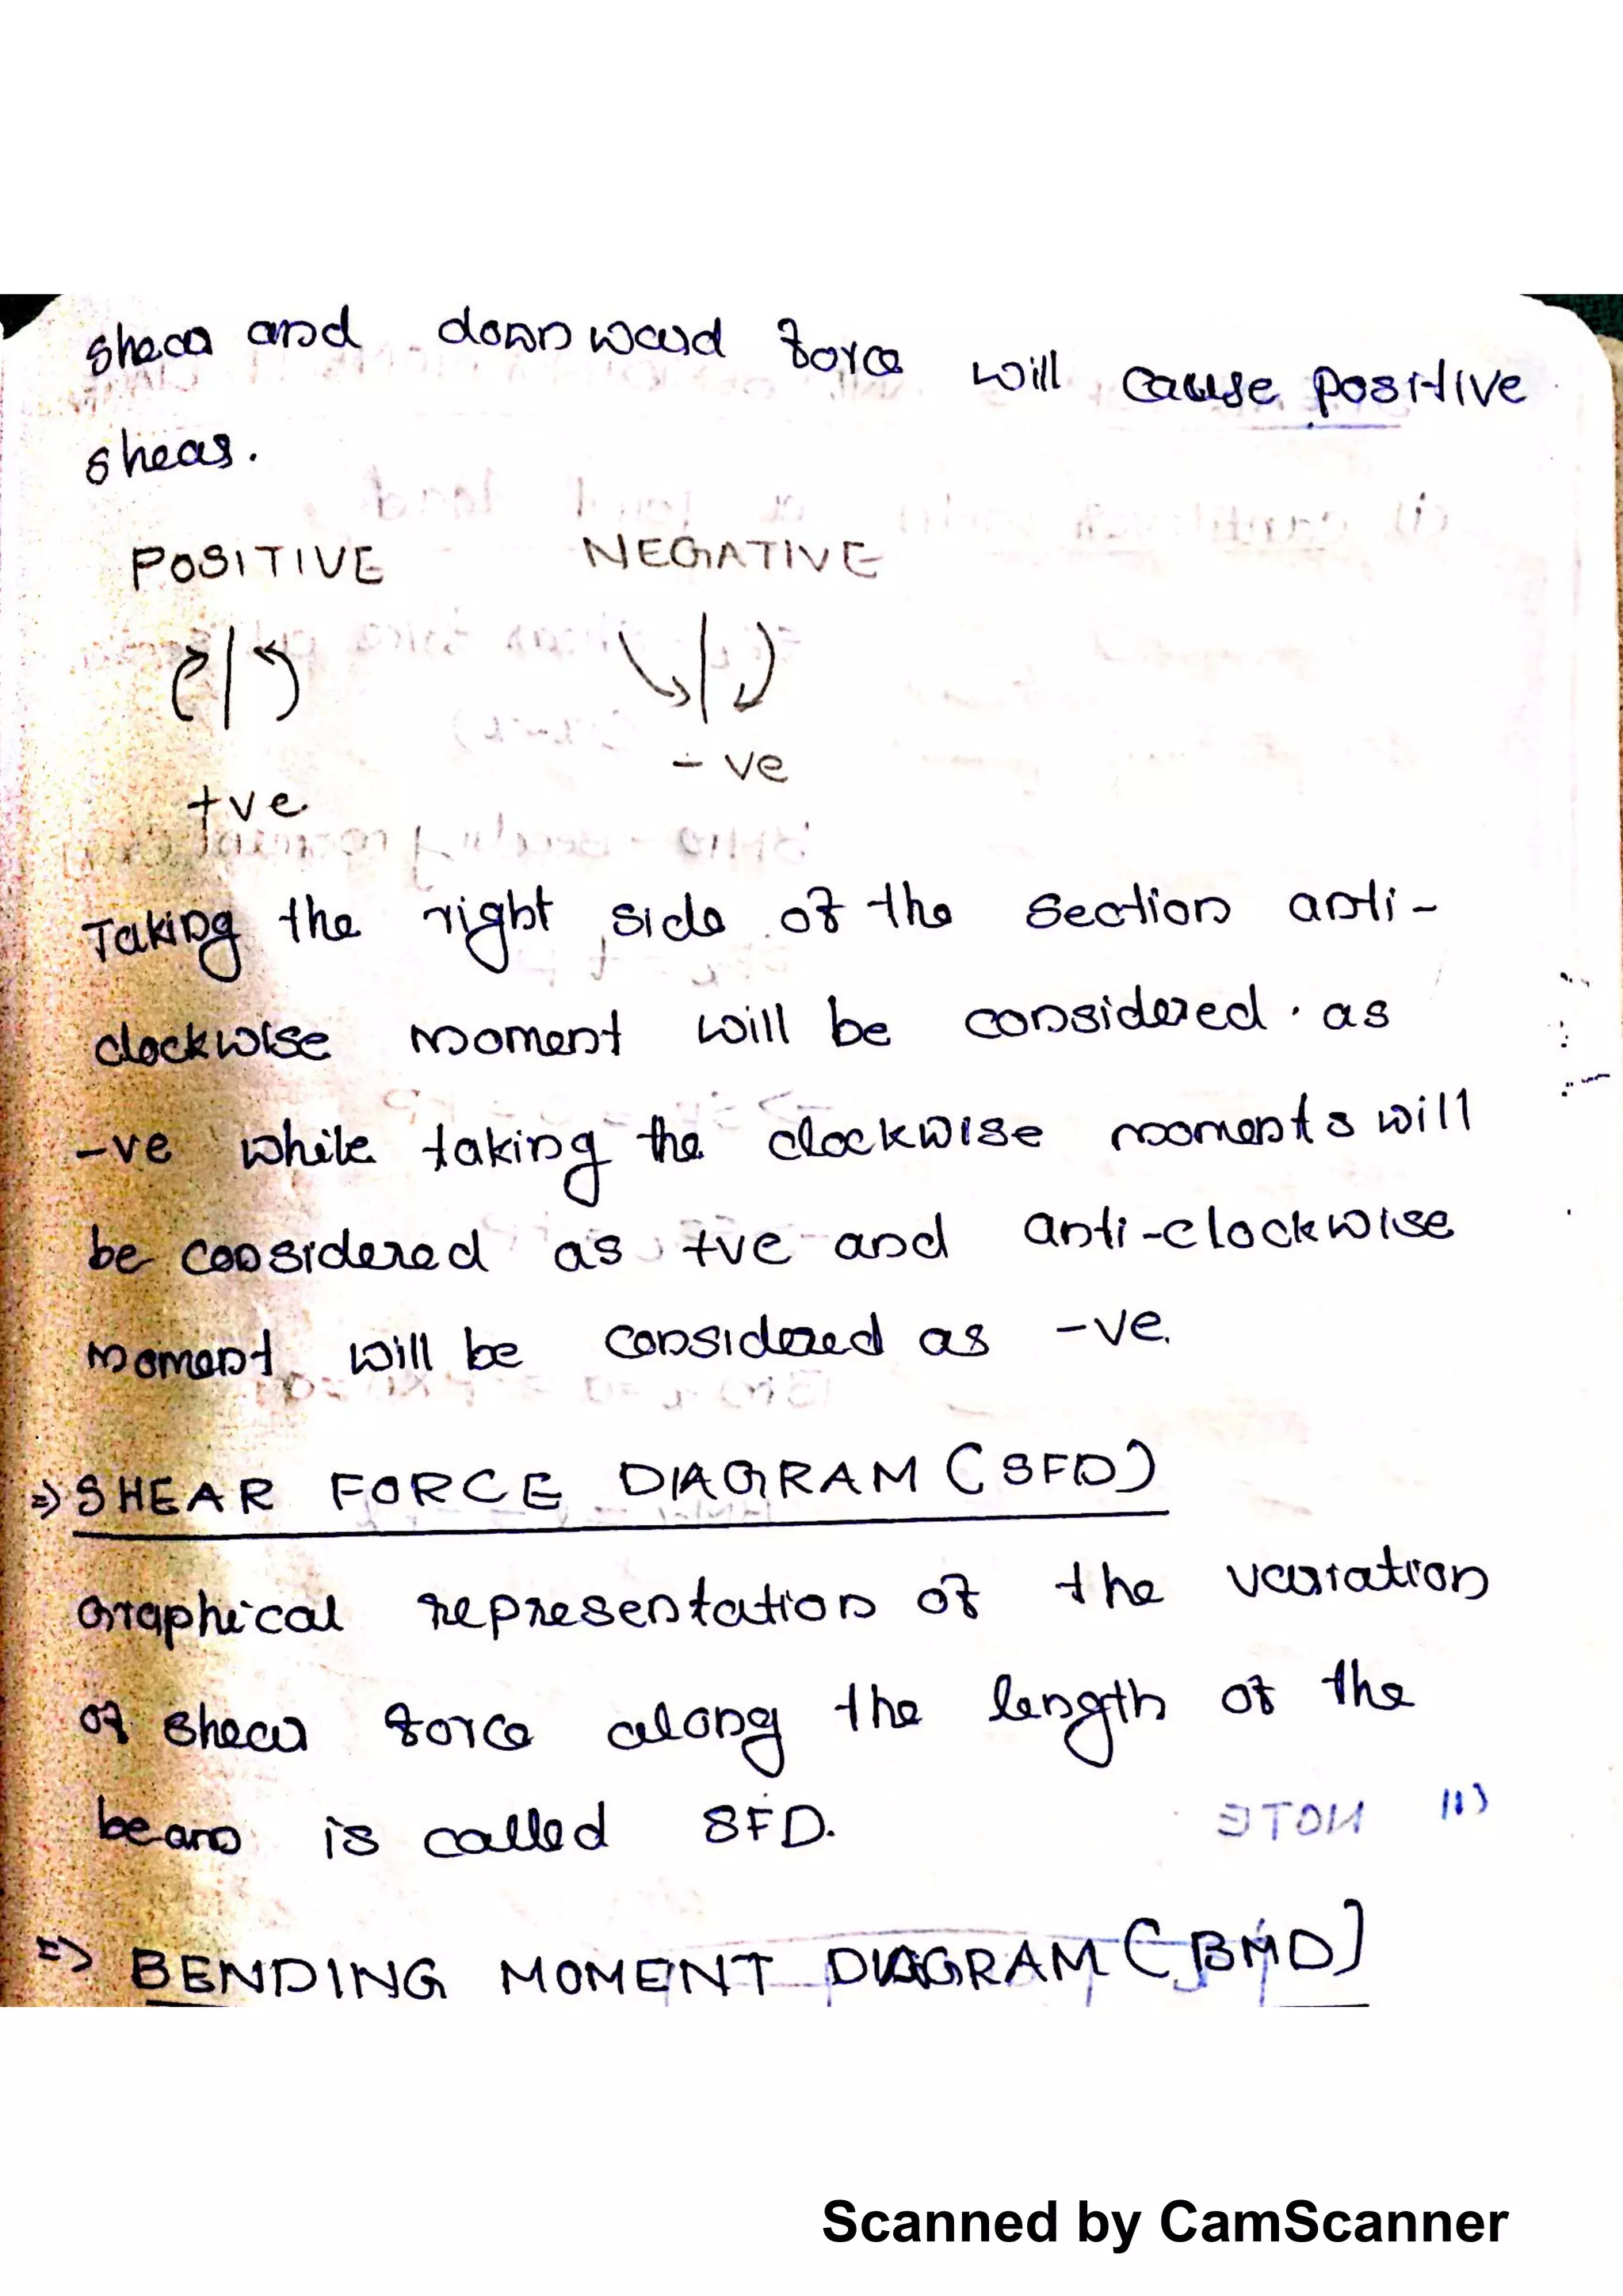 shear and downward force will cause positive
shear.
POSITIVE NEGATIVE
+ve - ve
Taking the right side of the section anti-
clockwise moment will be considered as
-ve while taking the clockwise moments will
be considered as +ve and anti-clockwise
moment will be considered as -ve.
=> SHEAR FORCE DIAGRAM (SFD)
Graphical representation of the variation
of shear force along the length of the
beam is called SFD.
=> BENDING MOMENT DIAGRAM (BMD)
Scanned by CamScanner